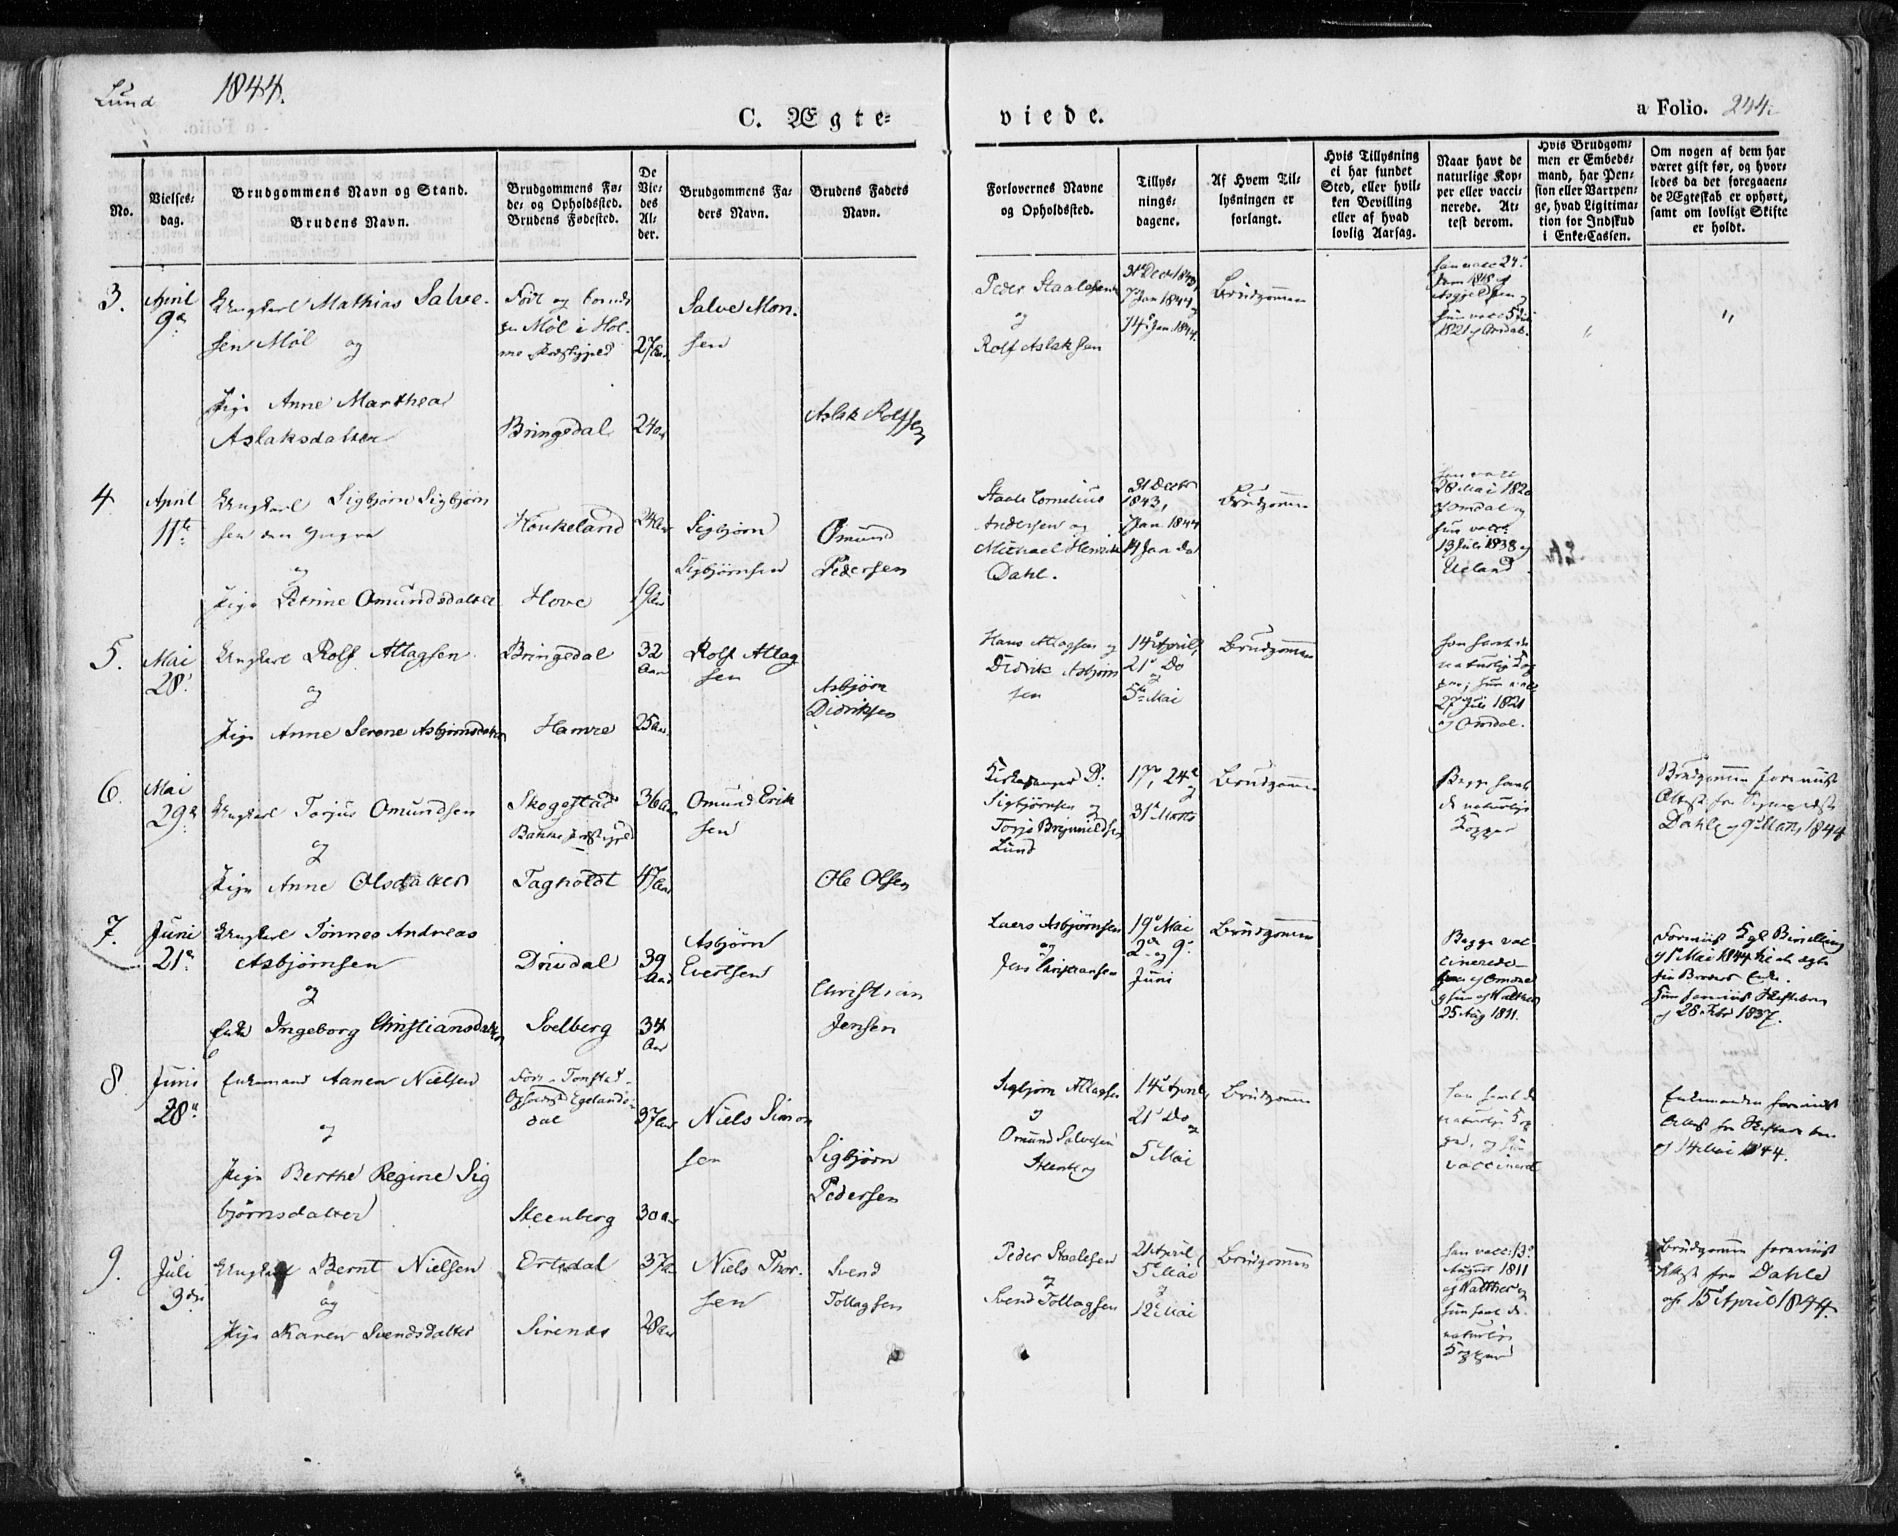 Lund 1844.
C. Ægte=
viede.
a Folio. 244.
No.
Vielses=
dag.
Brudgommens Navn og Stand.
Brudens Navn.
Brudgommens Fø=
de= og Opholdssted.
Brudens Fødested.
De
Vie=
des
Al=
der.
Brudgommens Fa=
ders Navn.
Brudens Faders
Navn.
Forlovernes Navne
og Opholdssted.
Tillys=
nings=
dagene.
Af Hvem Til=
lysningen er
forlangt.
Hvis Tillysning
ei har fundet
Sted, eller hvil=
ken Bevilling
eller af hvad
lovlig Aarsag.
Naar havt de
naturlige Kop=
per eller vacci=
nerede. At=
test derom.
Hvis Brudgom=
men er Embeds=
mand, har Pen=
sion eller Vartpen=
ge, hvad Ligitima=
tion for Indskud
i Enke=Cassen.
Om nogen af dem har
været gift før, og hvor=
ledes da det foregaaen=
de Ægteskab er ophørt,
samt om lovligt Skifte
er holdt.
3. April
9de
Ungkarl Mathias Salve-
sen Møl og
Pige Anne Marthea
Aslaksdatter
Møl i Hol-
me Præstegjeld
Bringedal
27 Aar
24 Aar
Salve Mon-
sen
Aslak Rolfsen
Peder Staalesen
og
Rolf Aslaksen
31 Decb 1843,
7 Jan 1844 og
14 Jan 1844.
Brudgommen
4. April
11te
Ungkarl Sigbjørn Sigbjørn
sen den yngre
og
Pige Petrine Omundsdatter
Houkeland
Hove
24 Aar
19 Aar
Sigbjørn
Sigbjørnsen
Omund
Pedersen
Staale Cornelius
Andersen og
Michael Henrik
Dahl.
31 Decbr
1843,
7 Jan 1844
14 Jan do
Brudgommen
28 Mai 1820
af Omdal og
hun vacc.
13 Juli 1838 af
Ueland
5. Mai
28.
Ungkarl Rolf Atlagsen
og
Pige Anne Serene Asbjørnsdatter
Bringedal
Hamre
32
Aar
25 Aar
Rolf Atlag
sen
Asbjørn
Didriksen
Hans Atlagsen og
Didrik Asbjørn
sen
14 April,
21 Do
og
5te Mai
Brudgommen
han havt de
naturlige Kop
per, hun vacc
27 Juli 1821
af Omdal.
6. Mai
29de
Ungkarl Torjus Omundsen
og
Pige Anne Olsdatter
Skogestad
Bakke Præstegjeld
Tagholdt
36 Aar
47 Aar
Omund Erik
sen
Ole Olsen
Kirkesanger P.
Sigbjørnsen og
Torjs Brynnildsen
Lund
17, 24
og
31 Marts
Brudgommen
Begge havt
de naturlige
Kopper
Brudgommen foreviist
Attest fra
Dahl af 9 Marts 1844
7. Juni
21de
Ungkarl Tønnes Andreas
Asbjørnsen
og
Enke Ingeborg Christiansdatter
Drivdal
Soelberg
39
Aar
34
Aar
Asbjørn
Evertsen
Christian
Jensen
Laers Asbjørnsen
og
Jens Christiansen
19 Mai
2 og 9
Juni
Brudgommen
Begge vac-
cinerede
han af Omdal
og hun af Walther
25 Aug 1811.
Foreviist Kgl Bevilling
af 1 Mai 1844 til at ægte
sin Broders Enke.
Hun foreviist Skiftebrev
af 28 Febr 1837.
8 Juni
28de
Enkemand Aanen Nielsen
og
Pige Berthe Regine Sig
bjørnsdatter
Tonstad
Opholdst Egelands-
dal
Steenberg
37 Aar
30 Aar
Niels Simon
sen
Sigbjørn
Pedersen
Sigbjørn Atlagsen
og
Omund Salvesen
Steenberg
14 April,
21 Do
og
5 Mai
Brudgommen
han havt de
naturlige Kop
per, og hun
vaccineret
Enkemanden foreviist
Attest fra Skifteretten
af 14 Mai 1844.
9. Juli
3die
Ungkarl Bernt Nielsen
og
Pige Karen Svendsdatter
Ørtsdal
Sirenes
37 Aar
28 Aar
Niels Thor-
sen
Svend
Tollagsen
Peder Staalesen
og
Svend Tollagsen
21 April,
5 Mai
og
12 Mai
Brudgommen
han vacc: 13
August 1811
af Walther og
hun havt de
naturlige
Kopper
Brudgommen foreviist
Attest fra Dahle
af 15 April 1844.